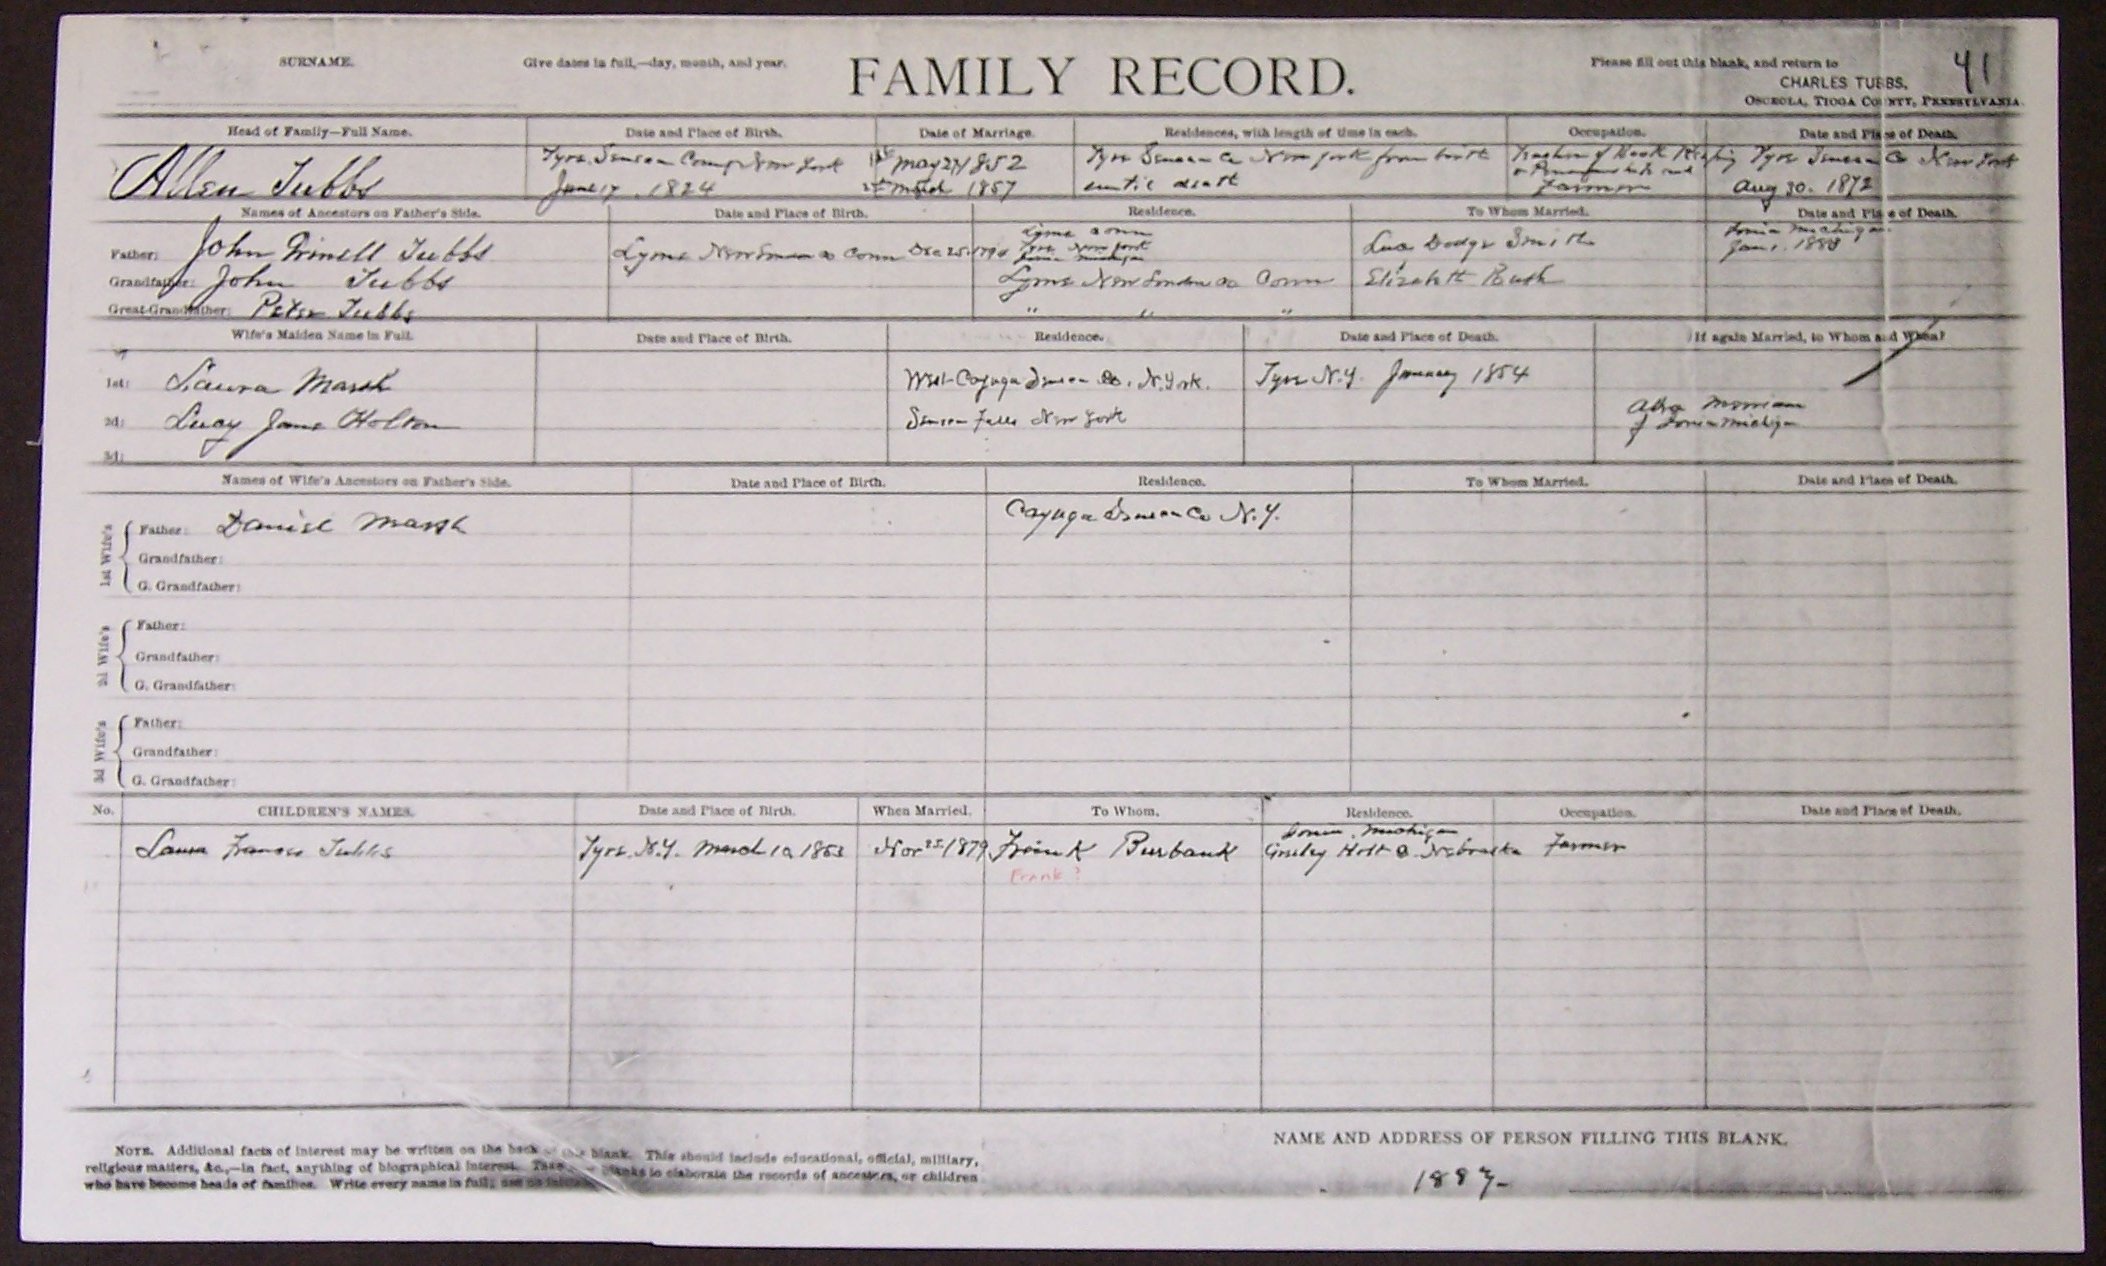 SURNAME.
Give dates in full,—day, month, and year.
FAMILY RECORD.
Please fill out this blank, and return to
CHARLES TUBBS,
OSCEOLA, TIOGA COUNTY, PENNSYLVANIA.
41
Head of Family—Full Name. Date and Place of Birth. Date of Marriage. Residences, with length of time in each. Occupation. Date and Place of Death.
Allen Tubbs
Tyre, Seneca County New York
June 17, 1824
1st May 27 1852
2d March 1857
Tyre Seneca Co New York from birth
until death
Teacher of Book Keeping
Farmer
Tyre Seneca Co New York
Aug 30. 1872
Names of Ancestors on Father's Side. Date and Place of Birth. Residence. To Whom Married. Date and Place of Death.
Father: John Tubbs Lyme New London Co Conn Dec 25. 1794
Lyme Conn
Tyre New York
Ionia Michigan
Dodge Smith
Ionia Michigan
Jan 1.
Grandfather: John Tubbs Lyme New London Co Conn Elizabeth Bush
Great-Grandfather: Peter Tubbs " " "
Wife's Maiden Name in Full. Date and Place of Birth. Residence. Date and Place of Death. If again Married, to Whom and When?
1st: Laura Marsh West Cayuga Seneca Co. N. York. Tyre N.Y. January 1854
2d: Lucy Jane Holton Seneca Falls New York
Merriam
of Ionia Michigan
3d:
Names of Wife's Ancestors on Father's Side. Date and Place of Birth. Residence. To Whom Married. Date and Place of Death.
1st Wife's
Father: Daniel Marsh Cayuga Seneca Co N.Y.
Grandfather:
G. Grandfather:
2d Wife's
Father:
Grandfather:
G. Grandfather:
3d Wife's
Father:
Grandfather:
G. Grandfather:
No. CHILDREN'S NAMES. Date and Place of Birth. When Married. To Whom. Residence. Occupation. Date and Place of Death.
Laura Frances Tubbs Tyre N.Y. March 10 1853 Nov 25 1879 Frank Burbank
Ionia, Michigan
Holt Co. Nebraska Farmer
Frank?
NOTE. Additional facts of interest may be written on the back of this blank. This should include educational, official, military,
religious matters, &c.,—in fact, anything of biographical interest. Take blanks to elaborate the records of ancestors, or children
who have become heads of families. Write every name in full;
NAME AND ADDRESS OF PERSON FILLING THIS BLANK.
1887